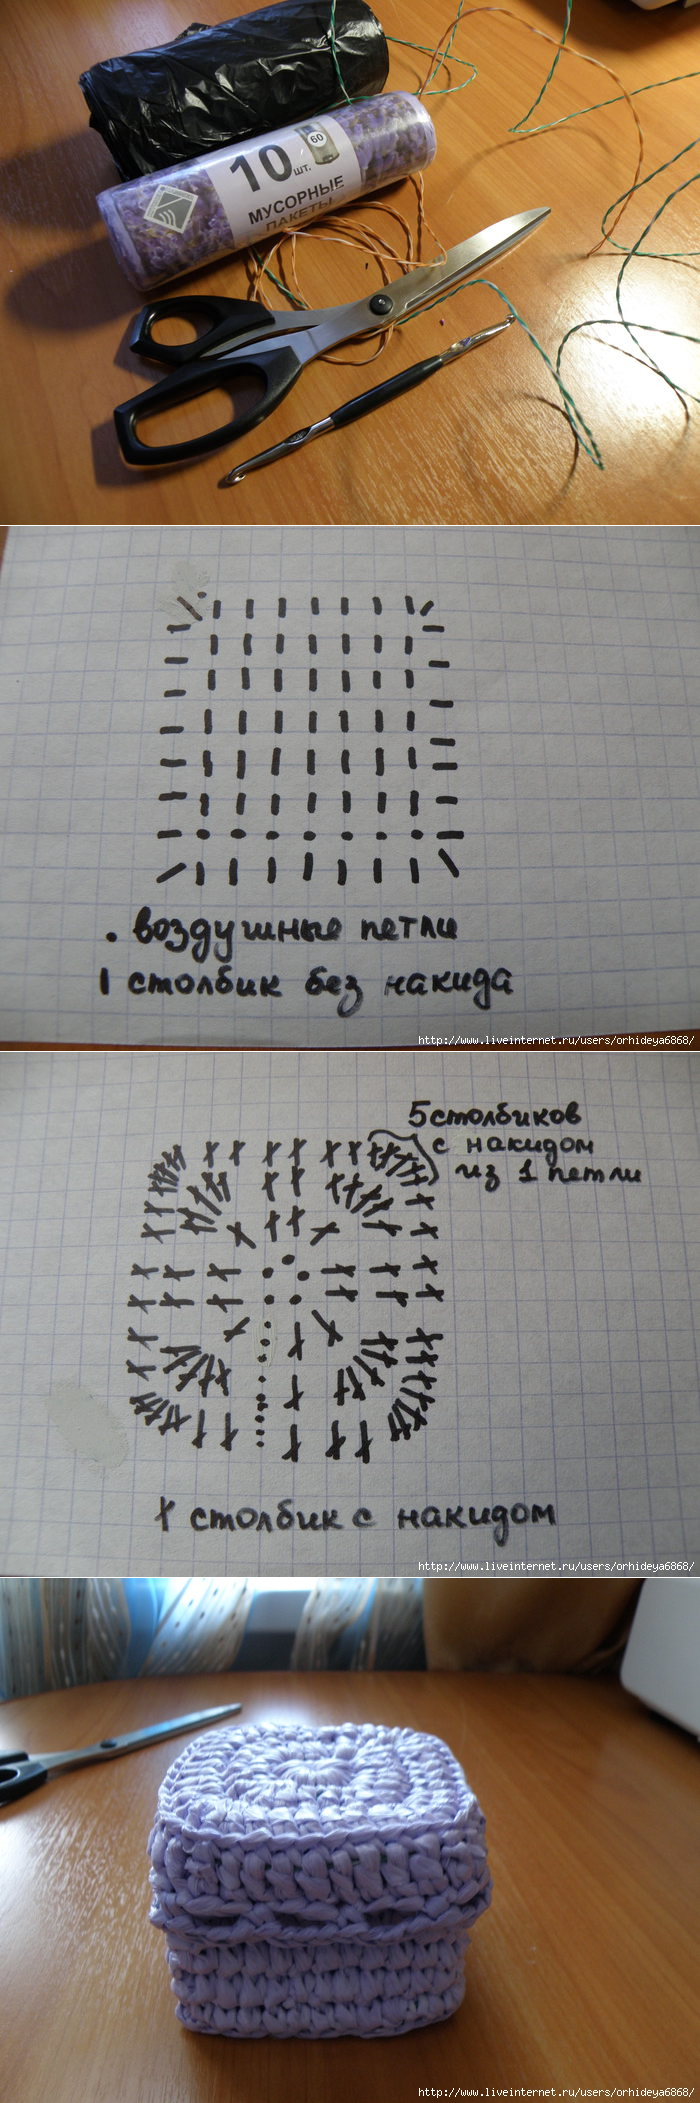 10 шт.
60
МУСОРНЫЕ
ПАКЕТЫ
. воздушные петли
I столбик без накида
http://www.liveinternet.ru/users/orhideya6868/
5 столбиков
с накидом
из 1 петли
† столбик с накидом
http://www.liveinternet.ru/users/orhideya6868/
http://www.liveinternet.ru/users/orhideya6868/